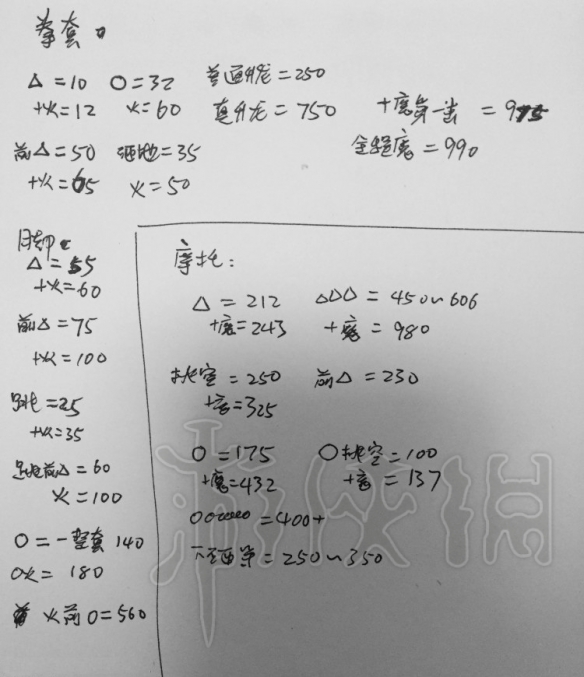 拳套。
△=10 O=32 普通升龙=250
+火=12 火=60 真升龙=750 +魔第一击=975
前△=50 砸地=35 全程魔=990
+火=65 火=50
脚。
△=55
+火=60
前△=75
+火=100
=25
+火=35
前△=60
火=100
O=一整套140
O火=180
火前O=560
摩托:
△=212 △△△=450~606
+魔=243 +魔=980
挑空=250 前△=230
+魔=325
O=175 O挑空=100
+魔=432 +魔=137
=400+
=250~350